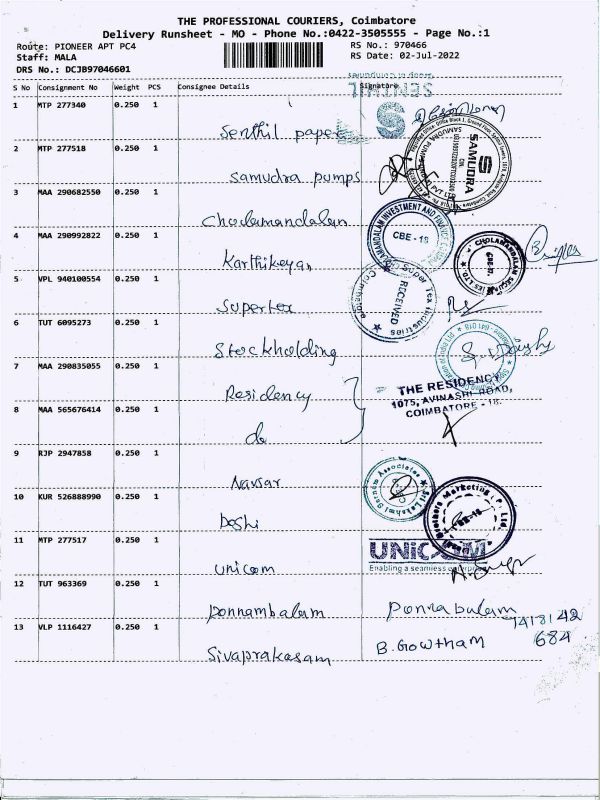 THE PROFESSIONAL COURIERS, Coimbatore
Delivery Runsheet - MO - Phone No.:0422-3505555 - Page No.:1
Route: PIONEER APT PC4
RS No.: 970466
Staff: MALA
RS Date: 02-Jul-2022
DRS No.: DCJB97046601
S No Consignment No Weight PCS Consignee Details Signature
SENTHIL
1 MTP 277340 0.250 1
Senthil papers
2 MTP 277518 0.250 1
Samudra pumps
SAMUDRA
3 MAA 290682550 0.250 1
Cholamandalan
CBE - 18
4 MAA 290992822 0.250 1
Karthikeyan
CHOLAMANDALAM SECURITIES LTD.
5 VPL 940100554 0.250 1
Supertex
Super Tex Industries
RECEIVED
Coimbatore
6 TUT 6095273 0.250 1
Stockholding
7 MAA 290835055 0.250 1
Residency
THE RESIDENCY
1075, AVINASHI ROAD,
COIMBATORE - 18.
8 MAA 565676414 0.250 1
do
9 RJP 2947858 0.250 1
Navsar
Sri Lakshmi Associates
10 KUR 526888990 0.250 1
Doshi
Marketing (P) Ltd
11 MTP 277517 0.250 1
Unicom
UNICOM
Enabling a seamless enterprise
12 TUT 963369 0.250 1
Ponnambalam Ponnabulam
7418142
684
13 VLP 1116427 0.250 1
Sivaprakasam B. Gowtham